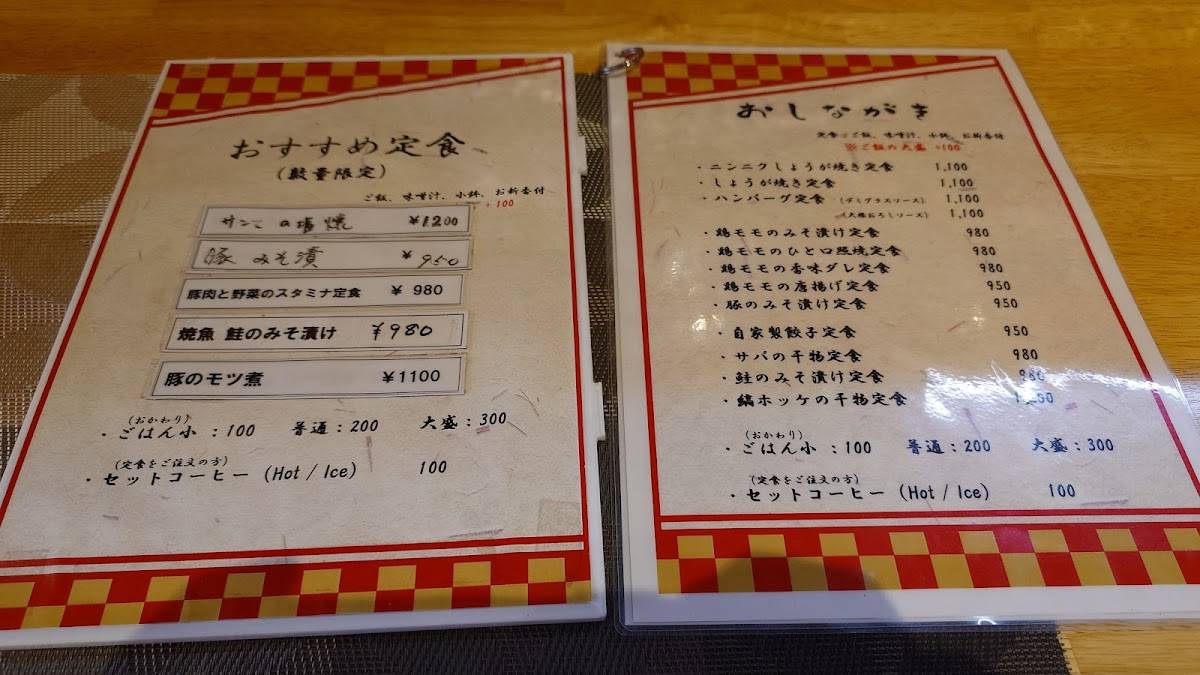 おすすめ定食
(数量限定)
ご飯、味噌汁、小鉢、お新香付
+100
サンマの塩焼 ¥1200
豚 みそ漬 ¥950
豚肉と野菜のスタミナ定食 ¥980
焼魚 鮭のみそ漬け ¥980
豚のモツ煮 ¥1100
(おかわり)
・ごはん小 :100 普通:200 大盛:300
(定食をご注文の方)
・セットコーヒー (Hot / Ice) 100
おしながき
定食はご飯、味噌汁、小鉢、お新香付
※ご飯の大盛 +100
・ニンニクしょうが焼き定食 1,100
・しょうが焼き定食 1,100
・ハンバーグ定食 (デミグラスソース) 1,100
(大根おろしソース) 1,100
・鶏モモのみそ漬け定食 980
・鶏モモのひと口照焼定食 980
・鶏モモの香味ダレ定食 980
・鶏モモの唐揚げ定食 950
・豚のみそ漬け定食 950
・自家製餃子定食 950
・サバの干物定食 980
・鮭のみそ漬け定食 980
・縞ホッケの干物定食
(おかわり)
・ごはん小 :100 普通:200 大盛:300
(定食をご注文の方)
・セットコーヒー (Hot / Ice) 100